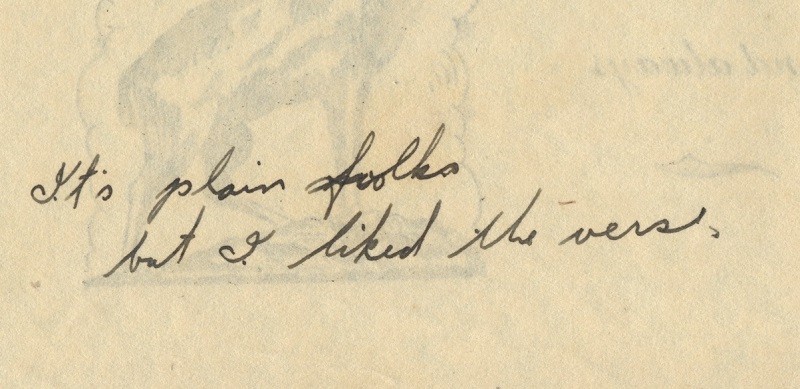 It's plain folks
but I liked the verse.